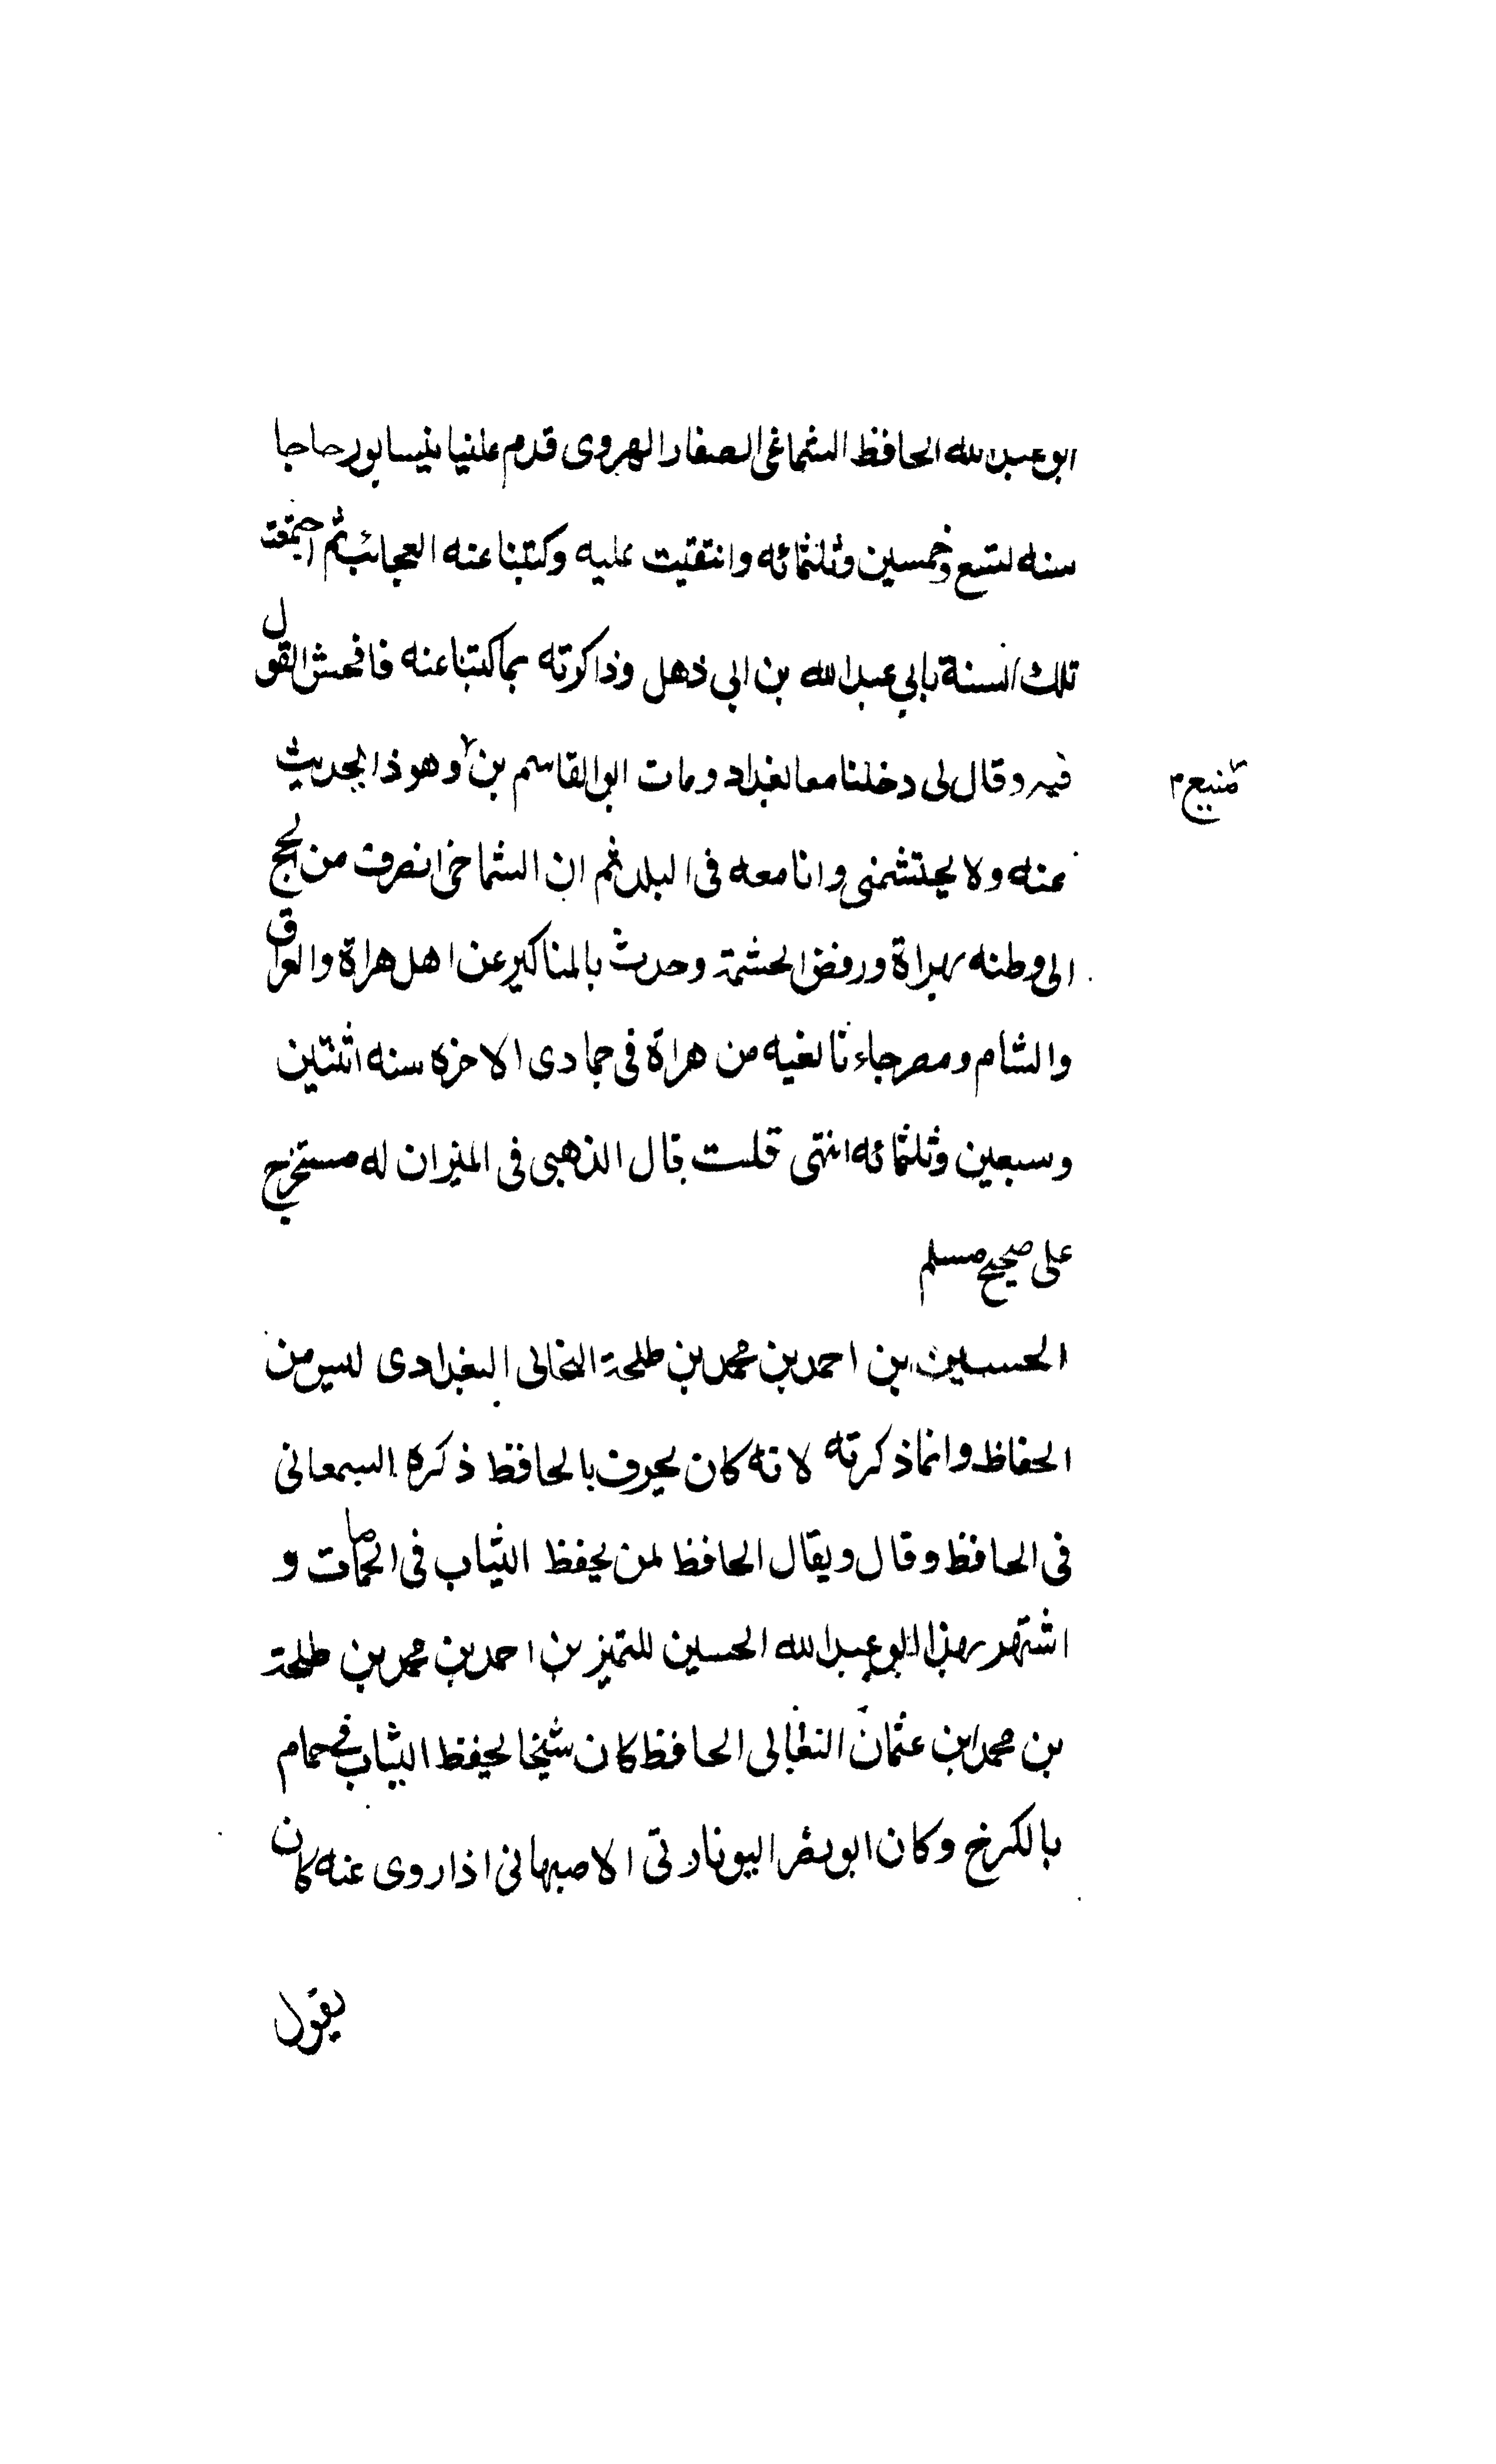 ابو عبد الله الحافظ الشماغى الصفار الهروى قدم علينا بنيسابور حاجا
سنه لتسع وخمسين وثلثمائه وانتقيت عليه وكتبنا عنه العجائب ثم اجتمعت
تلك السنة بابي عبد الله بن ابى ذهل وذاكرته بما كتبنا عنه فافحش القول
فيه وقال لى دخلنا معا بغداد ومات ابو القاسم بن وهوذا يحديث
منيع م
عنه ولا يحتشمنى وانا معه فى البلد ثم ان الشماخى انصرف من الحج
الى وطنه بهراة ورفض الحشمة وحدث بالمناكير عن اهل هراة والعراق
والشام ومصر جاءنا نعيه من هراة فى جمادى الاخره سنه اثنتين
وسبعين وثلثمائه انتهى قلت قال الذهبى فى الميزان له مستخرج
على صحيح مسلم
الحسين بن احمد بن محمد بن طلحة النعالى البغدادى ليس من
الحفاظ وانما ذكرته لانه كان يعرف بالحافظ ذكره السمعانى
فى الحافظ وقال ويقال الحافظ لمن يحفظ الثياب فى الحمامات و
اشتهر بهذا ابو عبد الله الحسين للتميز بن احمد بن محمد بن طلحة
بن محمد ابن عثمان النعالى الحافظ كان شيخا يحفظ الثياب فى حمام
بالكرخ وكان ابو نصر اليونارتى الاصبهانى اذا روى عنه كان
يقول